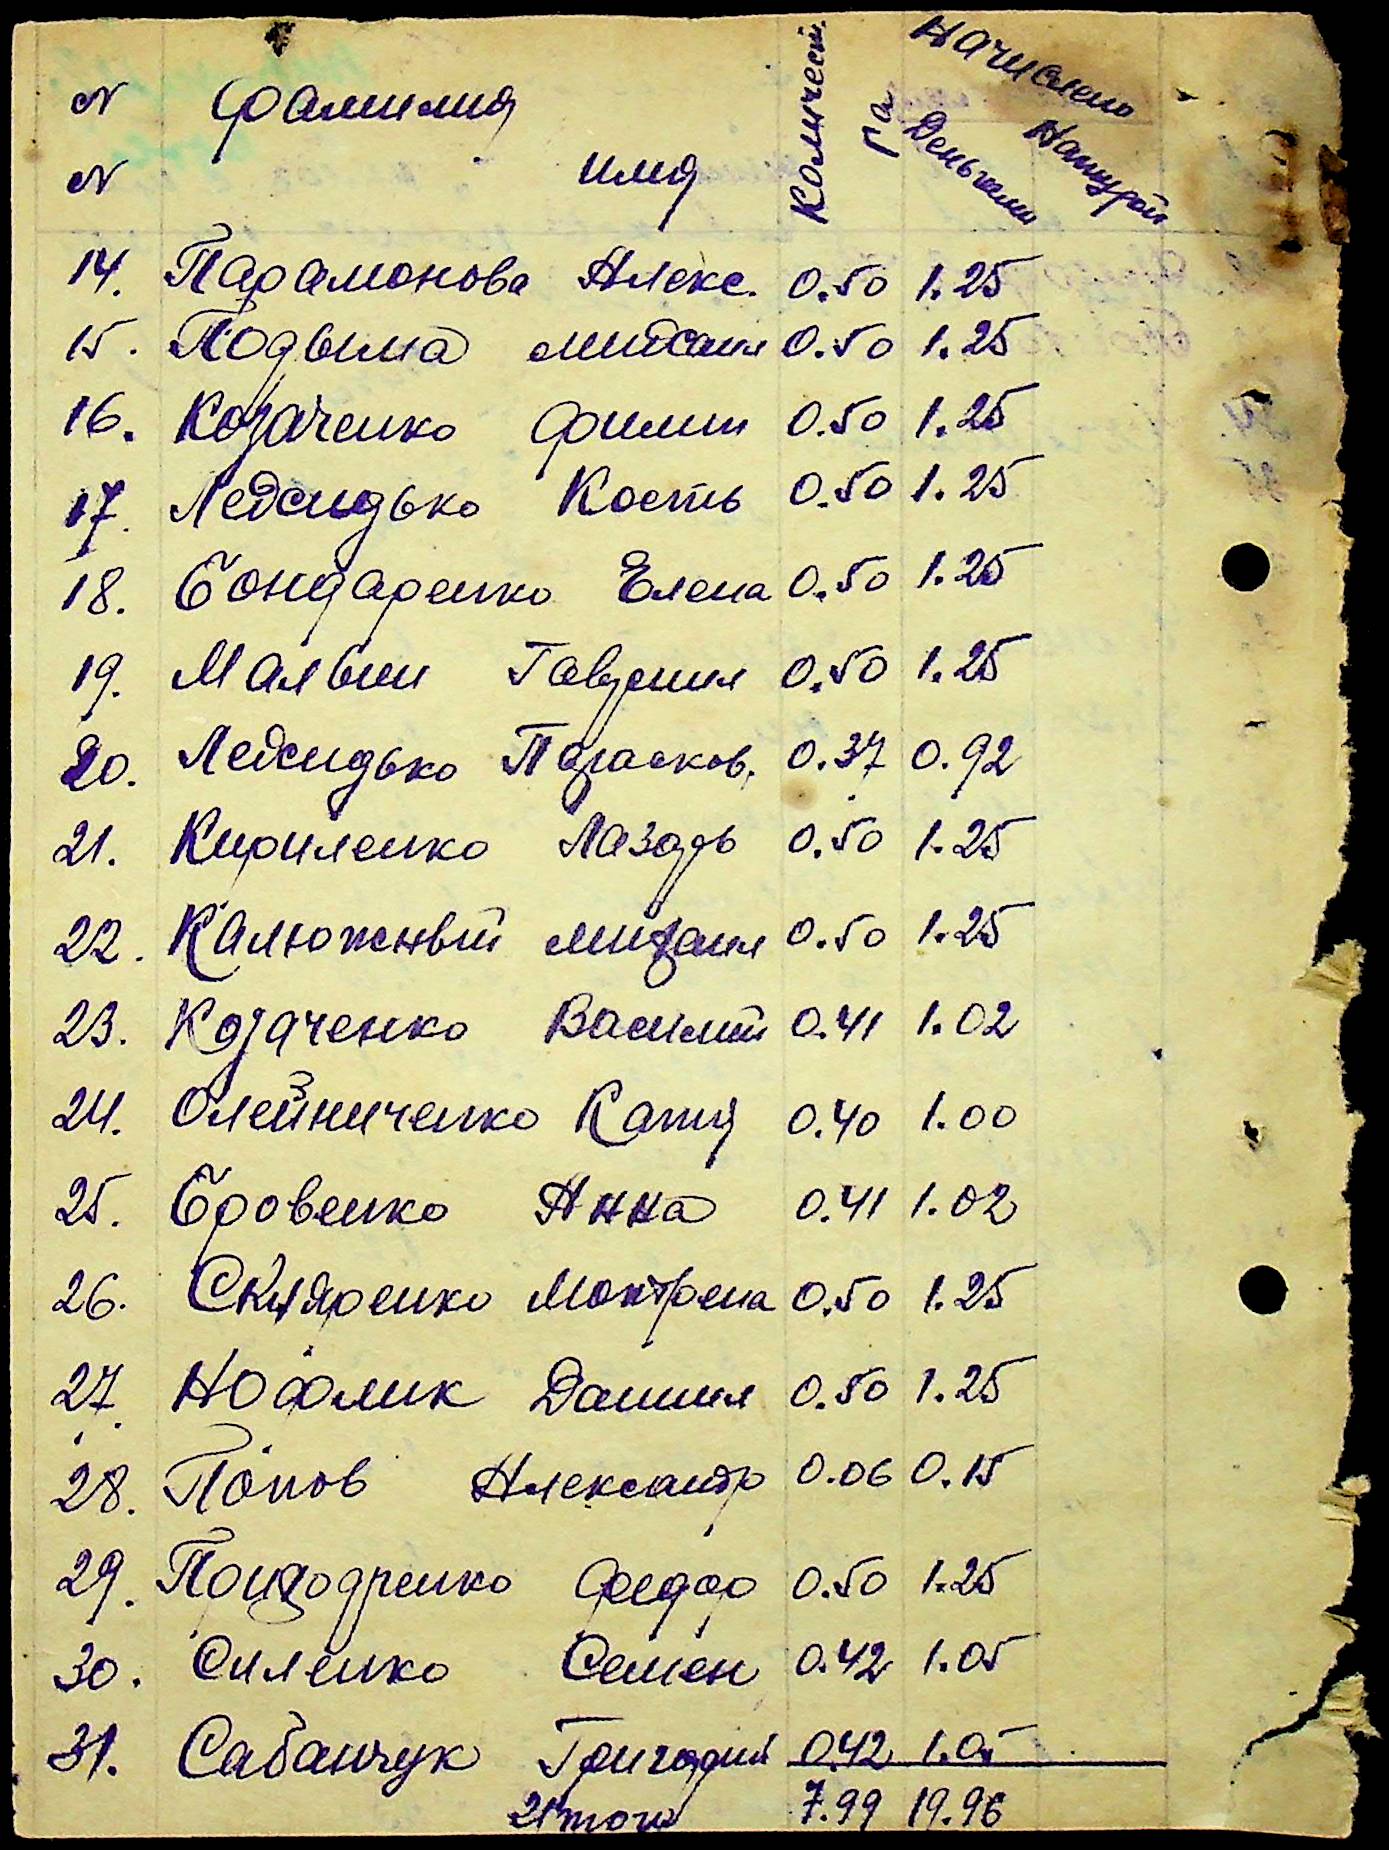 N фамилия Количест. га Начислено
N имя Деньгами Натурой
14. Парамонова Алекс. 0.50 1.25
15. Подыма михаил 0.50 1.25
16. Козаченко Филип 0.50 1.25
17. Ледсидько Кость 0.50 1.25
18. Бондаренко Елена 0.50 1.25
19. Малыш Гаврил 0.50 1.25
20. Ледсидько Парасков. 0.37 0.92
21. Кириленко Лазарь 0.50 1.25
22. Калюжный михаил 0.50 1.25
23. Козаченко Василий 0.41 1.02
24. Олейниченко Катя 0.40 1.00
25. Бровенко Анна 0.41 1.02
26. Скляренко Мотрена 0.50 1.25
27. Нофлик Даниил 0.50 1.25
28. Попов Александр 0.06 0.15
29. Федор 0.50 1.25
30. Силенко Семен 0.42 1.05
31. Сабанчук Григорий 0.42 1.05
Итого 7.99 19.96